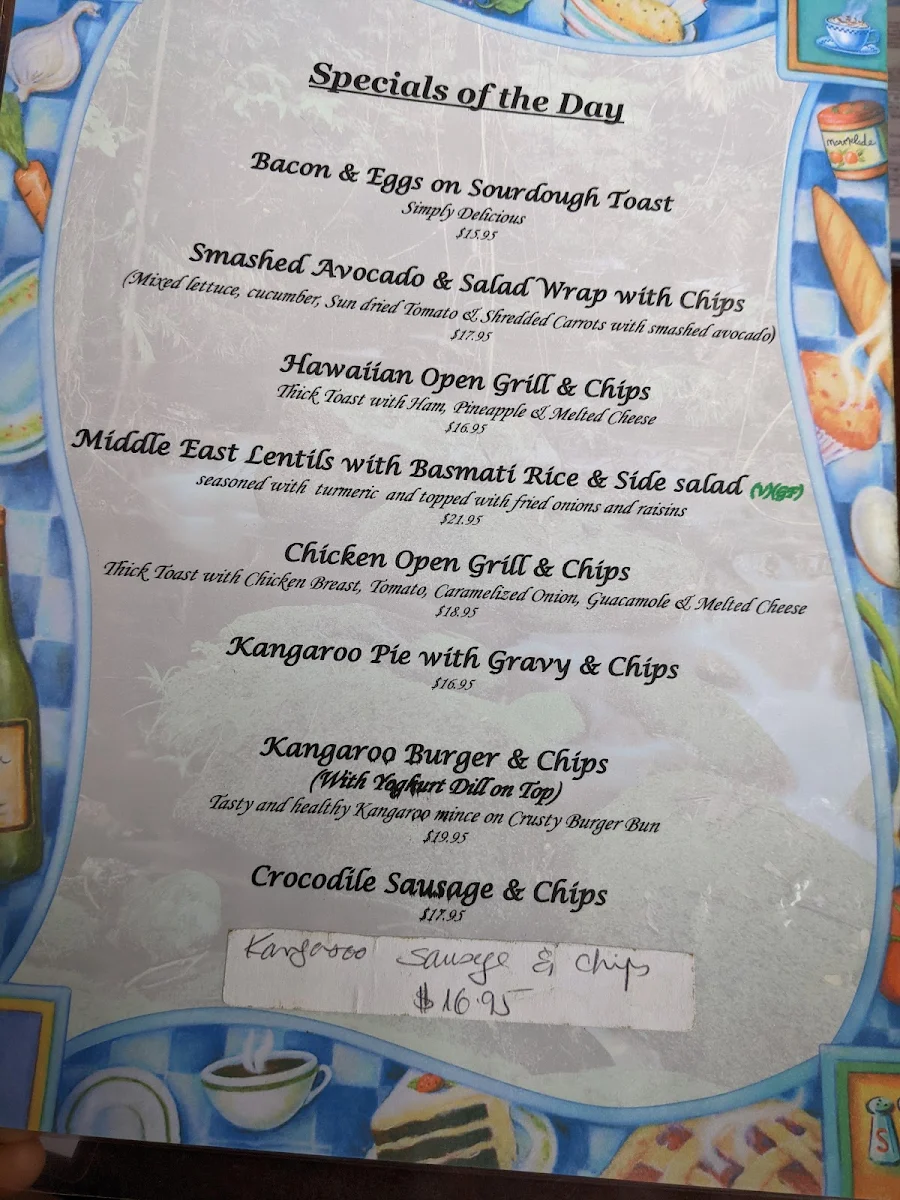 marmalade
Specials of the Day
Bacon & Eggs on Sourdough Toast
Simply Delicious
$15.95
Smashed Avocado & Salad Wrap with Chips
(Mixed lettuce, cucumber, Sun dried Tomato & Shredded Carrots with smashed avocado)
$17.95
Hawaiian Open Grill & Chips
Thick Toast with Ham, Pineapple & Melted Cheese
$16.95
Middle East Lentils with Basmati Rice & Side salad (V)(GF)
seasoned with turmeric and topped with fried onions and raisins
$21.95
Chicken Open Grill & Chips
Thick Toast with Chicken Breast, Tomato, Caramelized Onion, Guacamole & Melted Cheese
$18.95
Kangaroo Pie with Gravy & Chips
$16.95
Kangaroo Burger & Chips
(With Yoghurt Dill on Top)
Tasty and healthy Kangaroo mince on Crusty Burger Bun
$19.95
Crocodile Sausage & Chips
$17.95
Kangaroo Sausage & Chips
$16.95
S